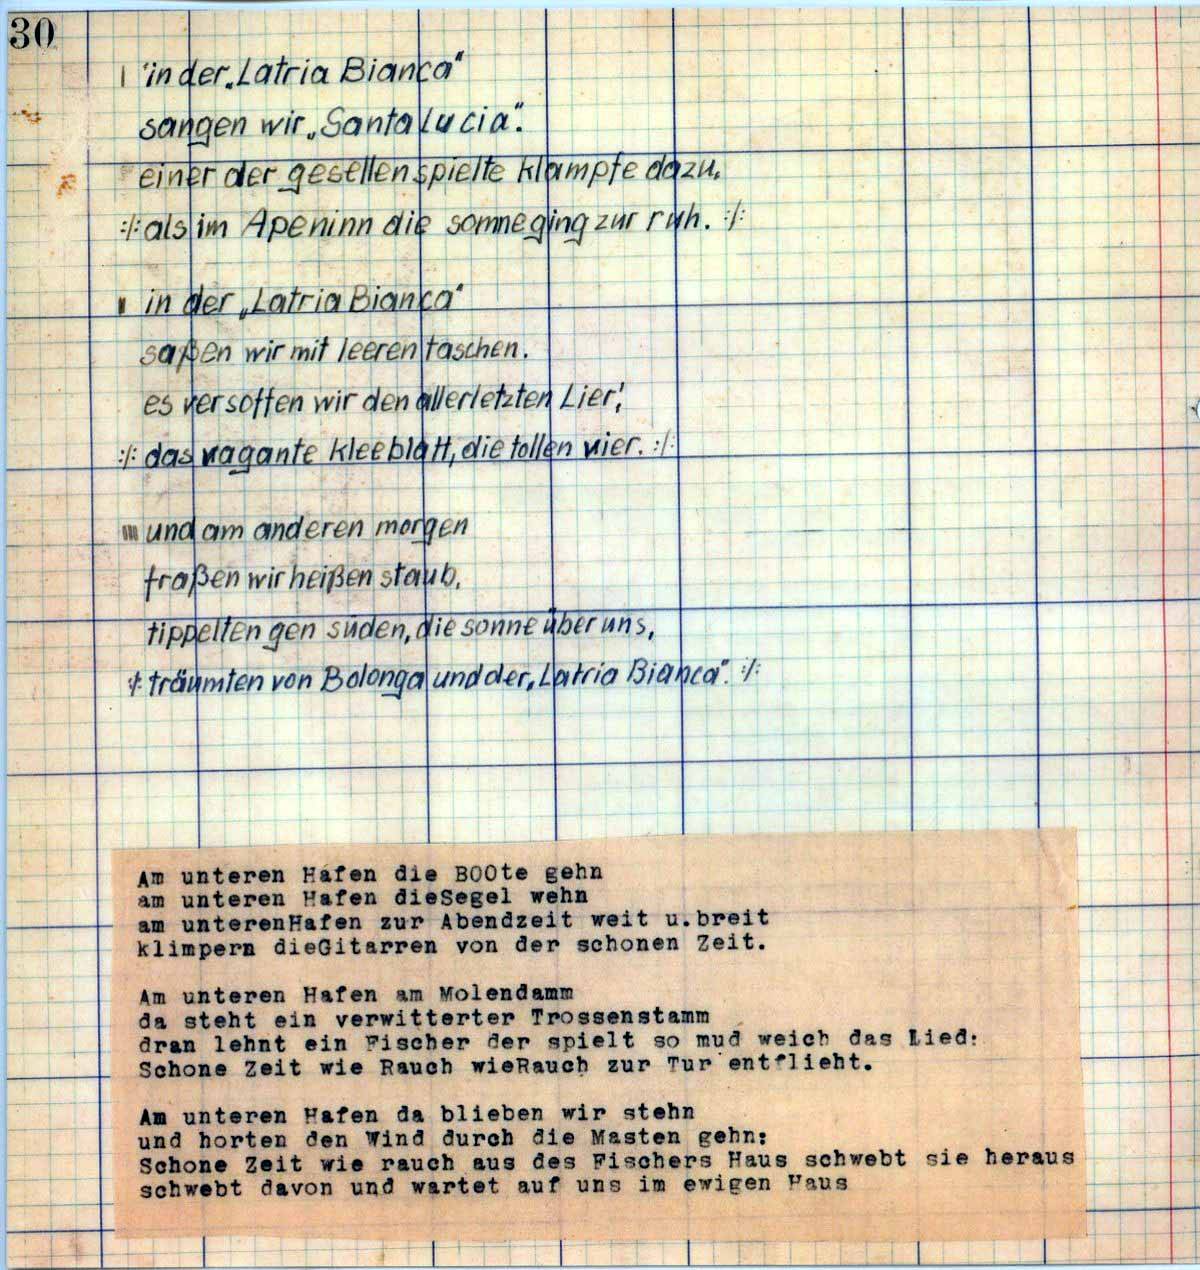 30
I in der „Latria Bianca“
sangen wir „Santa Lucia“.
einer der gesellen spielte klampfe dazu.
:/: als im Apeninn die somne ging zur ruh. :/:
II in der „Latria Bianca“
saßen wir mit leeren taschen.
es versoffen wir den allerletzten Lier',
:/: das vagante kleeblatt, die tollen vier. :/:
III und am anderen morgen
fraßen wir heißen staub,
tippelten gen süden, die sonne über uns,
:/: träumten von Bolonga und der „Latria Bianca“. :/:
Am unteren Hafen die BOOte gehn
am unteren Hafen dieSegel wehn
am unterenHafen zur Abendzeit weit u.breit
klimpern dieGitarren von der schonen Zeit.
Am unteren Hafen am Molendamm
da steht ein verwitterter Trossenstamm
dran lehnt ein Fischer der spielt so mud weich das Lied:
Schone Zeit wie Rauch wieRauch zur Tur entflieht.
Am unteren Hafen da blieben wir stehn
und horten den Wind durch die Masten gehn:
Schone Zeit wie rauch aus des Fischers Haus schwebt sie heraus
schwebt davon und wartet auf uns im ewigen Haus